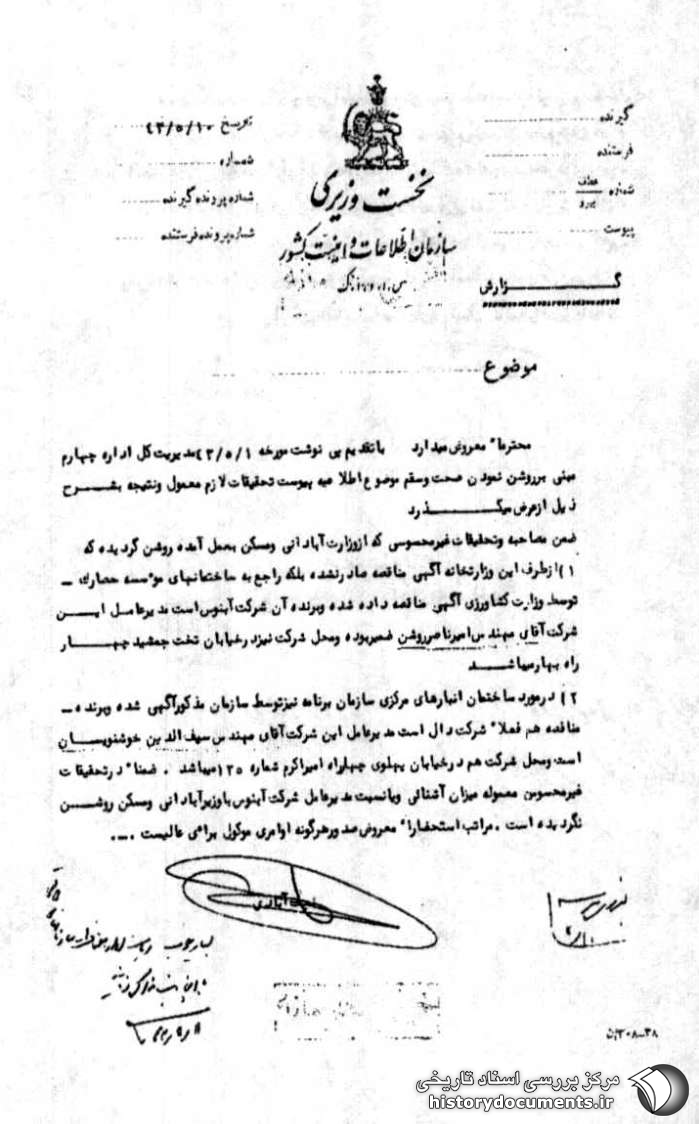 گیرنده
فرستنده
شماره عطف پیرو
پیوست
تاریخ ۴۳/۵/۱۰
شماره
شماره پرونده گیرنده
شماره پرونده فرستنده
نخست وزیری
سازمان اطلاعات و امنیت کشور
گزارش
موضوع
محترما" معروض میدارد با تقدیم پی نوشت مورخه ۴۳/۵/۱ مدیریت کل اداره چهارم
مبنی بر روشن نمودن صحت وسقم موضوع اطلاعیه پیوست تحقیقات لازم معمول ونتیجه بشـــرح
ذیل از عرض میگـــذرد
ضمن مصاحبه وتحقیقات غیرمحسوسی که ازوزارت آبادانی ومسکن بعمل آمده روشن گردیده که
۱) ازطرف این وزارتخانه آگهی مناقصه صادرنشده بلکه راجع به ساختمانهای موسسه حصارک ـ
توسط وزارت کشاورزی آگهی مناقصه داده شده وبرنده آن شرکت آبنوس است مدیرعامل ایـــن
شرکت آقای مهندس امیرناصر روشن ضمیربوده ومحل شرکت نیزدرخیابان تخت جمشید چهـــار
راه بهارمیباشـــد
۲) درمورد ساختمان انبارهای مرکزی سازمان برنامه نیزتوسط سازمان مذکورآگهی شده وبرنده ـ
مناقصه هم فعلا" شرکت دال است مدیرعامل این شرکت آقای مهندس سیف الدین خوشنویســـان
است ومحل شرکت هم درخیابان پهلوی چهارراه امیراکرم شماره ۱۳۵ میباشد . ضمنا" درتحقیقات
غیرمحسوس معموله میزان آشنائی ویانسبت مدیرعامل شرکت آبنوس باوزیرآبادانی ومسکن روشـــن
نگردیده است . مراتب استحضارا" معروض صدورهرگونه اوامری موکول برای عالیست .ـ.
مرکز بررسی اسناد تاریخی
historydocuments.ir